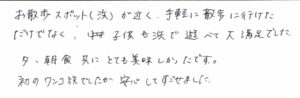 お散歩スポット(浜)が近く、手軽に散歩に行けた
だけでなく、中学子供も浜で遊べて大満足でした
夕、朝食 共にとても美味しかったです。
初のワンコ旅でしたが安心してすごせました。